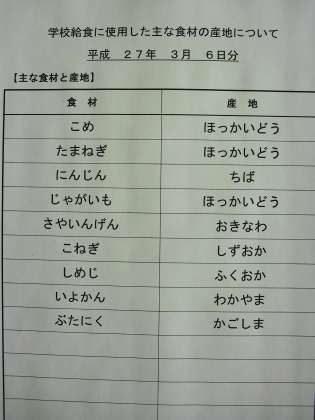 学校給食に使用した主な食材の産地について
平成　２７年　３月　６日分
【主な食材と産地】
食　材　産　地
こめ　ほっかいどう
たまねぎ　ほっかいどう
にんじん　ちば
じゃがいも　ほっかいどう
さやいんげん　おきなわ
こねぎ　しずおか
しめじ　ふくおか
いよかん　わかやま
ぶたにく　かごしま